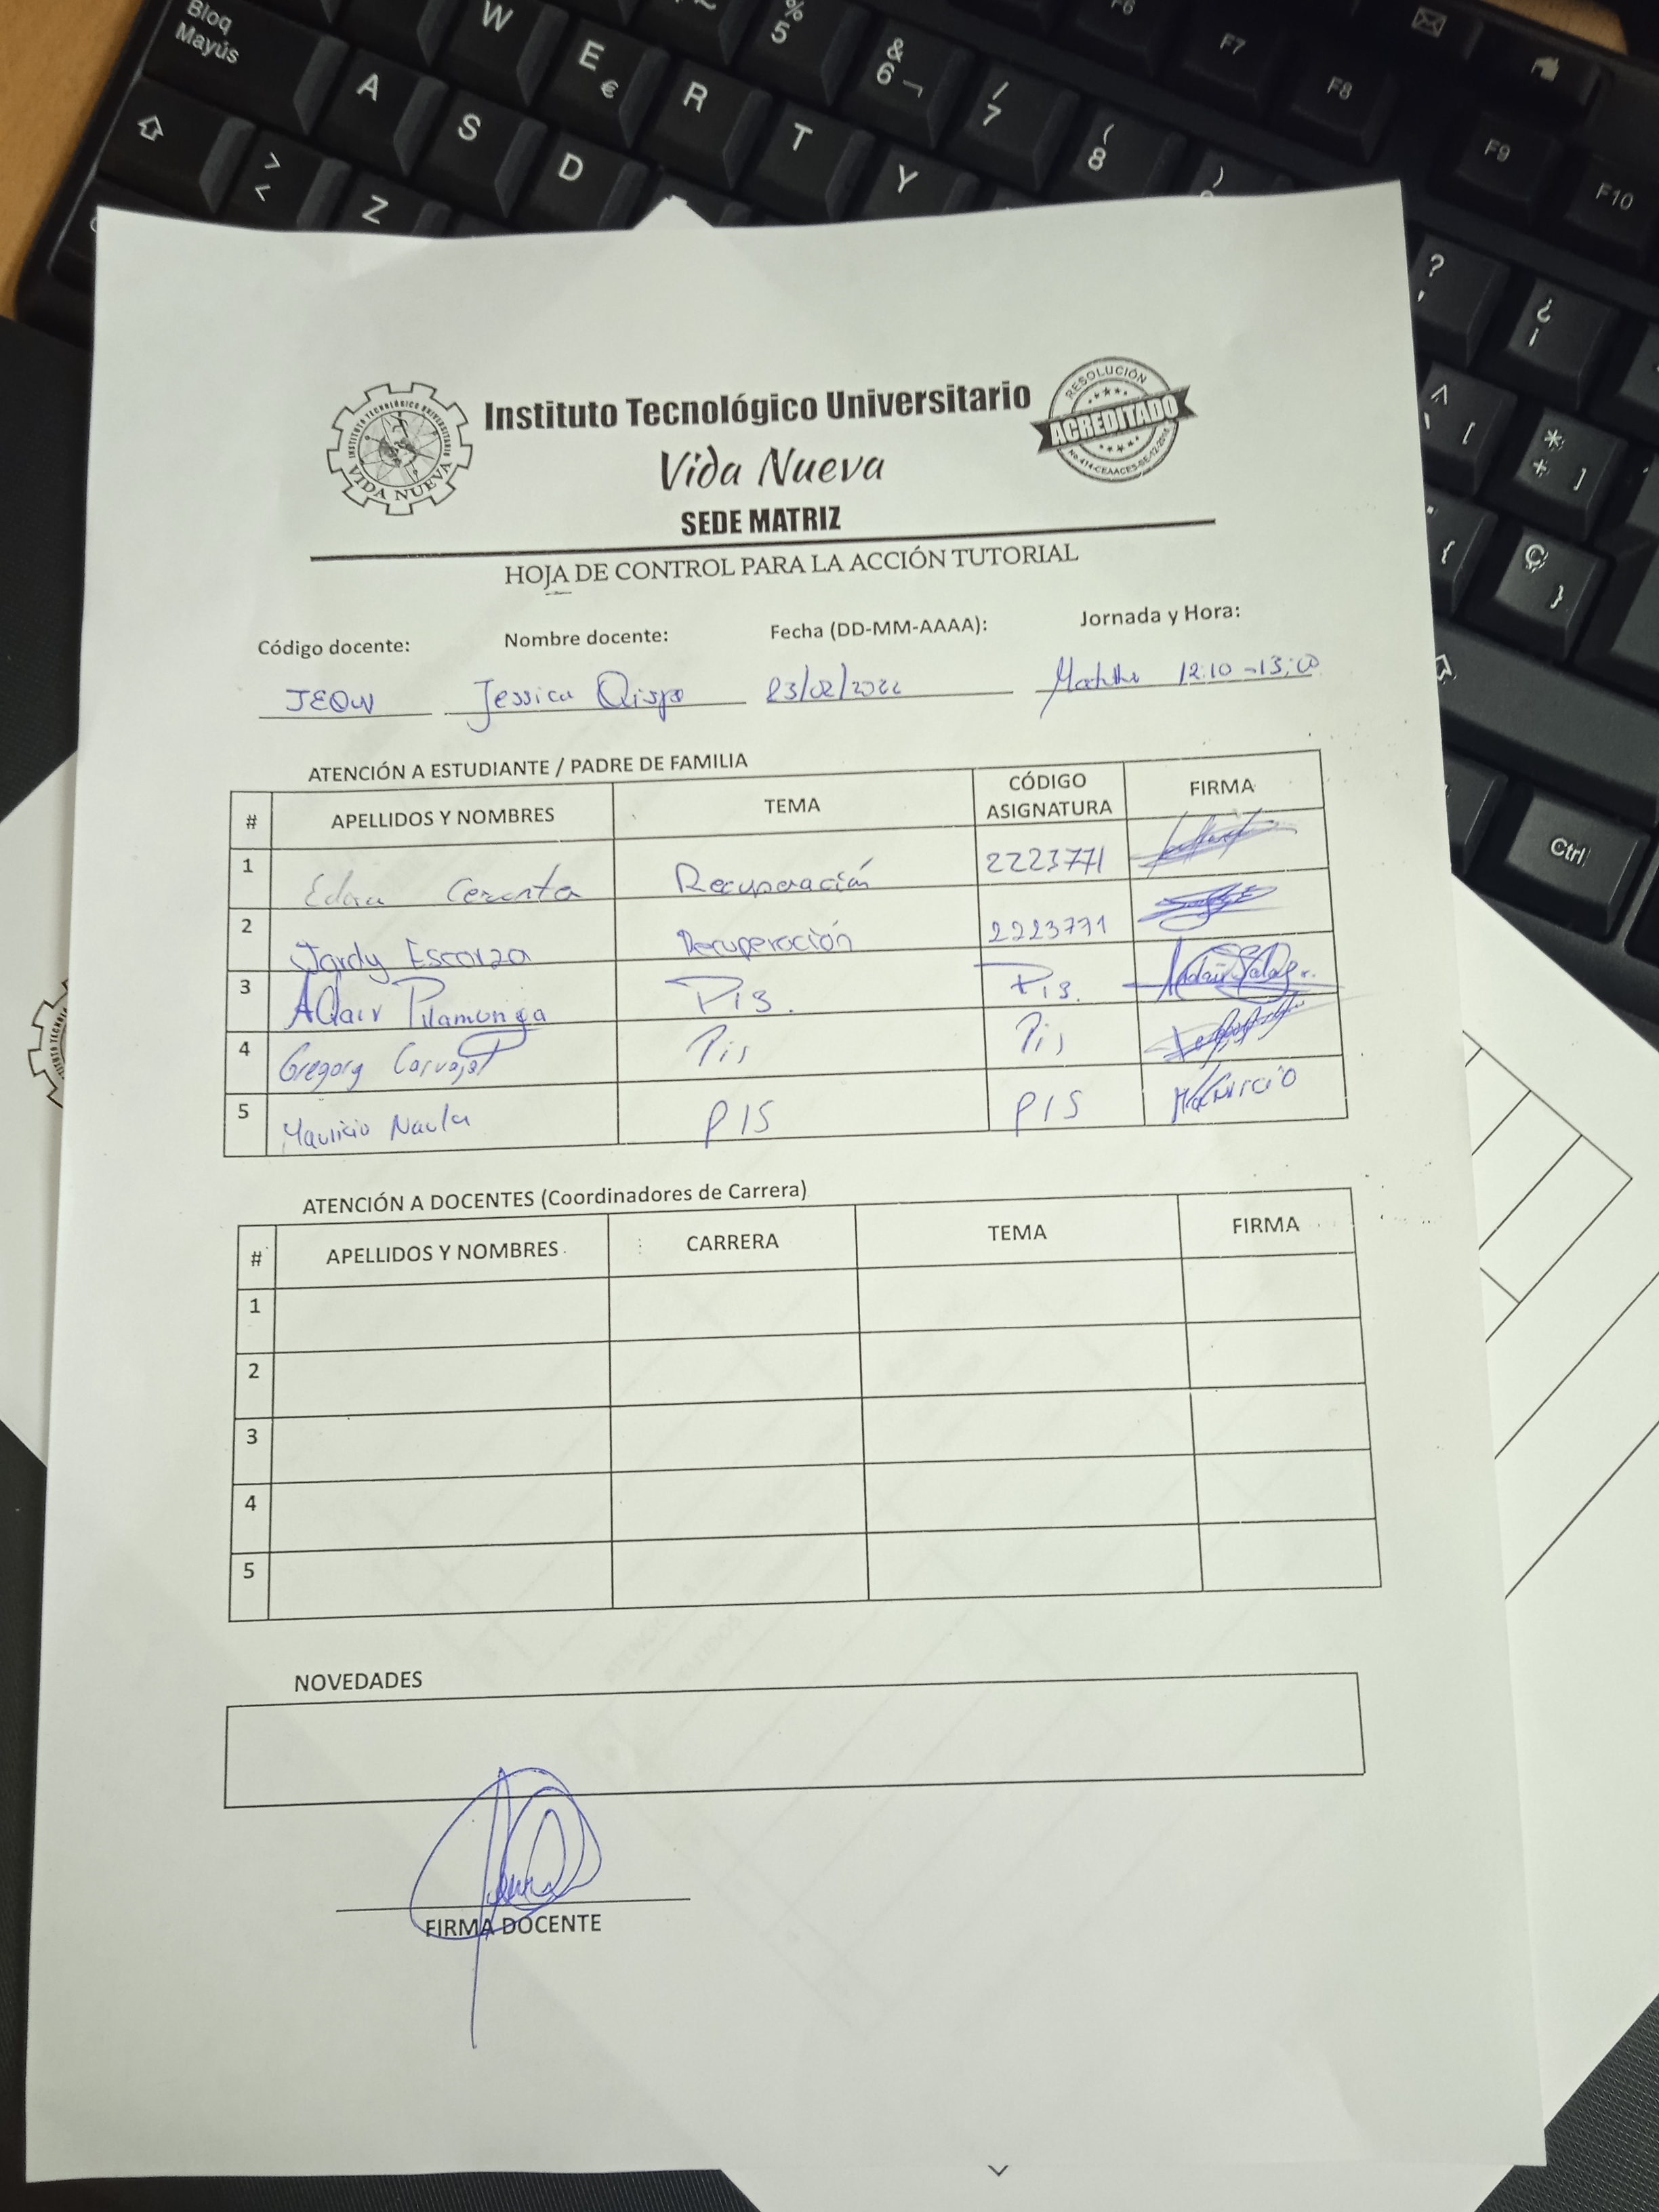 Bloq
Mayús
W
E
€
R
T
Y
%
5
&
6 ¬
/
7
(
8
)
F6
F7
F8
F9
F10
A
S
D
>
<
Z
?
'
¿
¡
^
[
*
+
]
{
Ç
}
Ctrl
INSTITUTO TECNOLÓGICO UNIVERSITARIO
VIDA NUEVA
Instituto Tecnológico Universitario
Vida Nueva
SEDE MATRIZ
RESOLUCIÓN
ACREDITADO
HOJA DE CONTROL PARA LA ACCIÓN TUTORIAL
Código docente: Nombre docente: Fecha (DD-MM-AAAA): Jornada y Hora:
Jessica 12:10 -13:00
ATENCIÓN A ESTUDIANTE / PADRE DE FAMILIA
# APELLIDOS Y NOMBRES TEMA CÓDIGO ASIGNATURA FIRMA
1 Recuperación 2223771
2 Jordy Escorza Recuperación 2223771
3 Adair Pilamunga Pis. Pis.
4 Gregory Carvajal Pis Pis
5 Mauricio Naula PIS PIS Mauricio
ATENCIÓN A DOCENTES (Coordinadores de Carrera)
# APELLIDOS Y NOMBRES CARRERA TEMA FIRMA
1
2
3
4
5
NOVEDADES
FIRMA DOCENTE